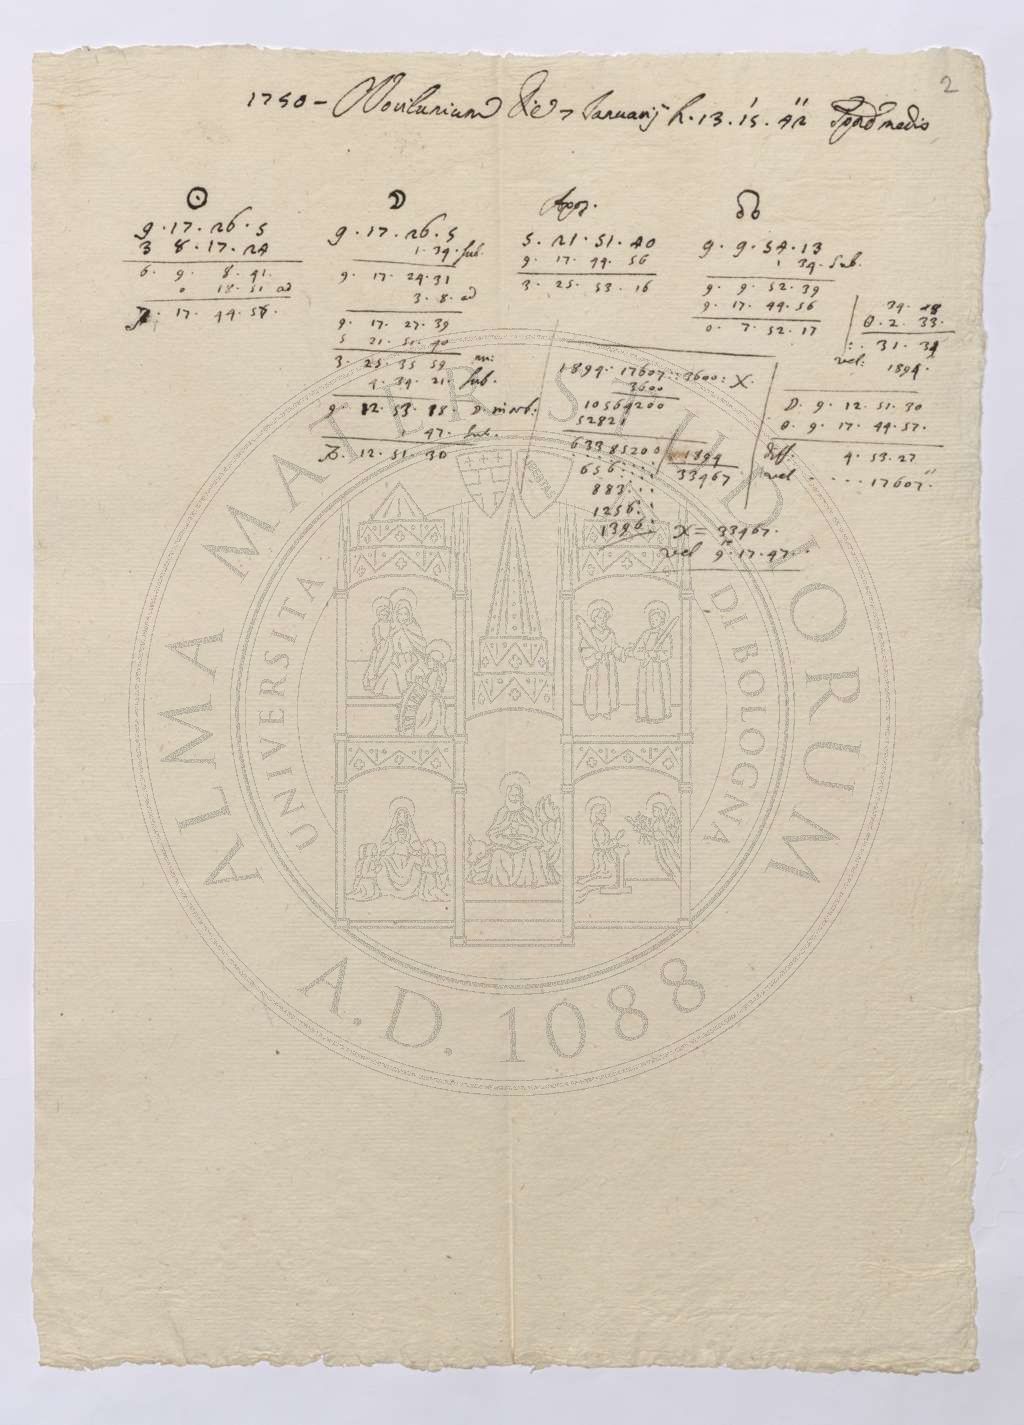 2
1750 - Novilunium die 7 Januarij h. 13. 15. 42 Tpore medio
☉
9. 17. 26. 5
3 8. 17. 24
6. 9. 8. 41
0 18. 51 ad
17. 44. 56.
☽
9. 17. 26. 5
1. 34. sub.
9. 17. 24. 31
3. 8. ad
9. 17. 27. 39
5 21. 51. 40
3. 25. 35 59
4. 34. 21. sub.
9. 12. 53. 18.
1 47. sub.
12. 51. 30
Apog.
5. 21. 51. 40
9. 17. 44. 56
3. 25. 53. 16
☊
9. 9. 54. 13
1 34. sub.
9. 9. 52. 39
9. 17. 44. 56
0. 7. 52. 17
34.
0. 2. 33.
31. 34
vel: 1894
1894. 17607 :: 3600 : X.
3600
10564200
52821
63385200 1894
656 33467
883
1256
1396
X = 33467.
vel 9. 17. 47.
☽. 9. 12. 51. 30
☉. 9. 17. 44. 57.
diff. 4. 53. 27
vel . . . . 17607"
ALMA MATER STUDIORUM
UNIVERSITA DI BOLOGNA
A.D. 1088